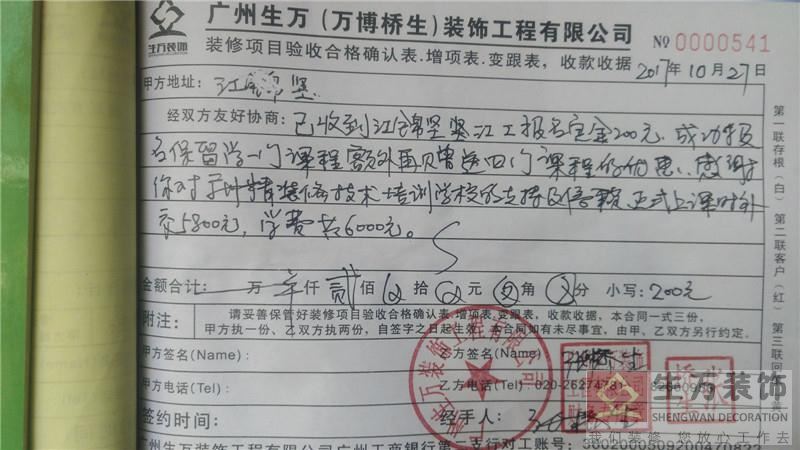 生万装饰
广州生万(万博桥生)装饰工程有限公司
装修项目验收合格确认表.增项表.变跟表,收款收据
№ 0000541
2017年10月27日
甲方地址:江 坚
经双方友好协商:已收到江锦坚 江工报名定金200元.成功报
名保留学一门课程额外再贝曾送四门课程的优惠.感谢
你对 精装修技术培训学校的支持及信赖 正式上课时补
交5800元,学费共6000元。
金额合计: 万 仟贰佰 拾 元 角 分 小写:200元
附注:
请妥善保管好装修项目验收合格确认表.增项表.变跟表,收款收据,本合同一式三份,
甲方执一份、乙双方执两份,自签字之日起生效,本合同如有未尽事宜,由甲、乙双方另行约定。
甲方签名(Name):
乙方签名(Name)
桥生
甲方电话(Tel):
乙方电话(Tel):020-26274781
签约时间:
经手人:
广州生万装饰工程有限公司广州工商银行第一支行对工账号:3602000509200470822
第一联存根(白)
第二联客户(红)
第三联回
装饰工程有限公司
生万装饰
SHENGWAN DECORATION
我们装修 您放心工作去